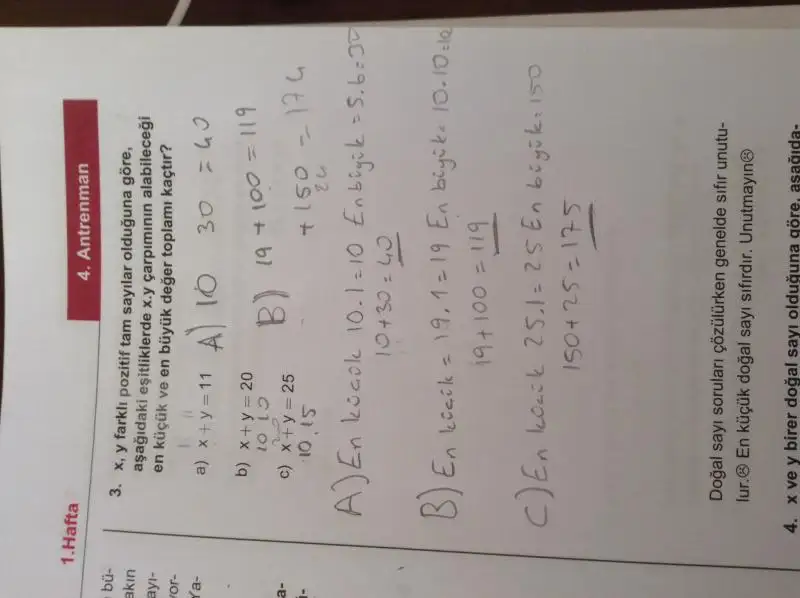 1.Hafta
4. Antrenman
bü-
akın
ayı-
yor-
Ya-
a-
i-
3. x, y farklı pozitif tam sayılar olduğuna göre,
aşağıdaki eşitliklerde x.y çarpımının alabileceği
en küçük ve en büyük değer toplamı kaçtır?
a) x + y = 11 A) 10 30 = 40
b) x + y = 20 B) 19 + 100 = 119
10 10
c) x + y = 25 + 150 = 174
24
10.15
A) En kücük 10.1=10 En büyük = 5.6=30
10+30=40
B) En kücük = 19.1=19 En büyük= 10.10=10
19+100=119
C) En kücük 25.1=25 En büyük=150
150+25=175
Doğal sayı soruları çözülürken genelde sıfır unutu-
lur.☹ En küçük doğal sayı sıfırdır. Unutmayın☹
4. x ve y birer doğal sayı olduğuna göre, aşağıda-